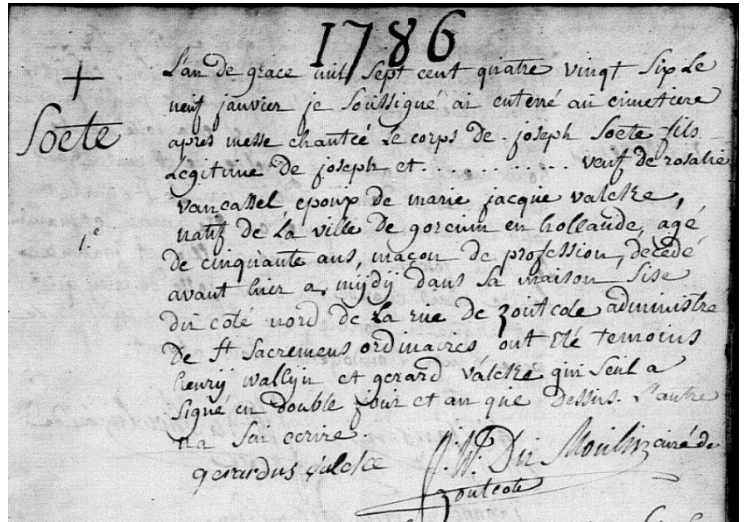 1786
+
Soete
1.e
L'an de grace mil Sept cent quatre vingt Six Le
neuf janvier je Soussigné ai enterré au cimetiere
apres messe chantée Le corps de joseph Soete fils
Legitime de joseph et ........... veuf de rosalie
vancassel epoux de marie jacque valcke,
natif de La ville de gorcum en hollande, agé
de cinquante ans, maçon de profession, decedé
avant hier a mijdij dans Sa maison Sise
du coté nord de La rue de Zoutcote administré
De St Sacremens ordinaires ont été temoins
henrij wallijn et gerard valcke qui Seul a
Signé en Double jour et an que Dessus. L'autre
na Seu ecrire.
gerardus valcke
Du Moulin curé de
Zoutcote